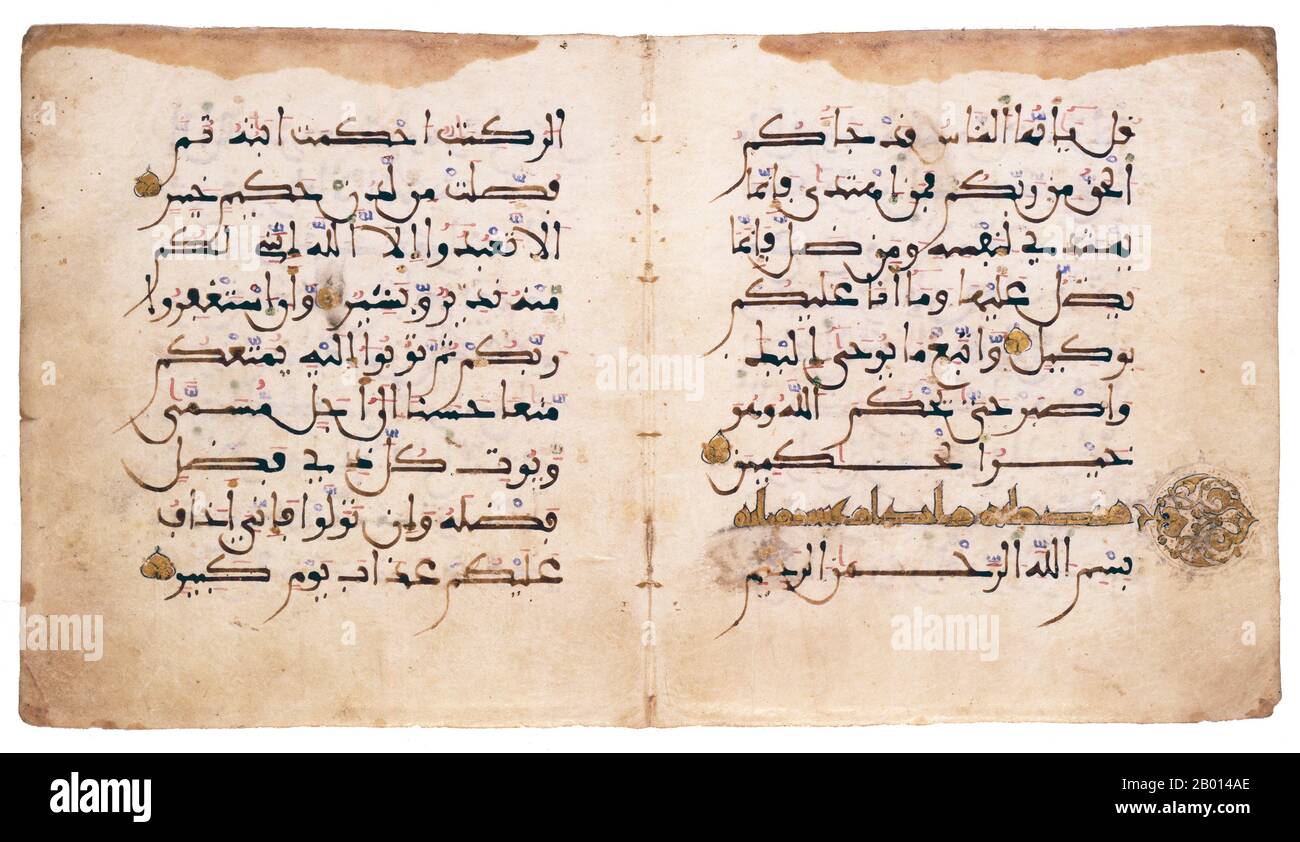 قل يايها الناس قد جاكم
الحق من ربكم فمن اهتدى فإنما
يهتدي لنفسه ومن ضل فإنما
يضل عليها وما أنا عليكم
بوكيل واتبع ما يوحى إليك
واصبر حتى يحكم الله وهو
خير الحكمين
بسم الله الرحمن الرحيم
الر كتب احكمت ايته ثم
فصلت من لدن حكيم خبير
الا تعبدوا إلا الله إنني لكم
منه نذير وبشير وان استغفروا
ربكم ثم توبوا إليه يمتعكم
متعا حسنا إلى اجل مسمى
ويوت كل ذي فضل
فضله وإن تولوا فإني اخاف
عليكم عذاب يوم كبير
alamy
Image ID: 2B014AE
www.alamy.com